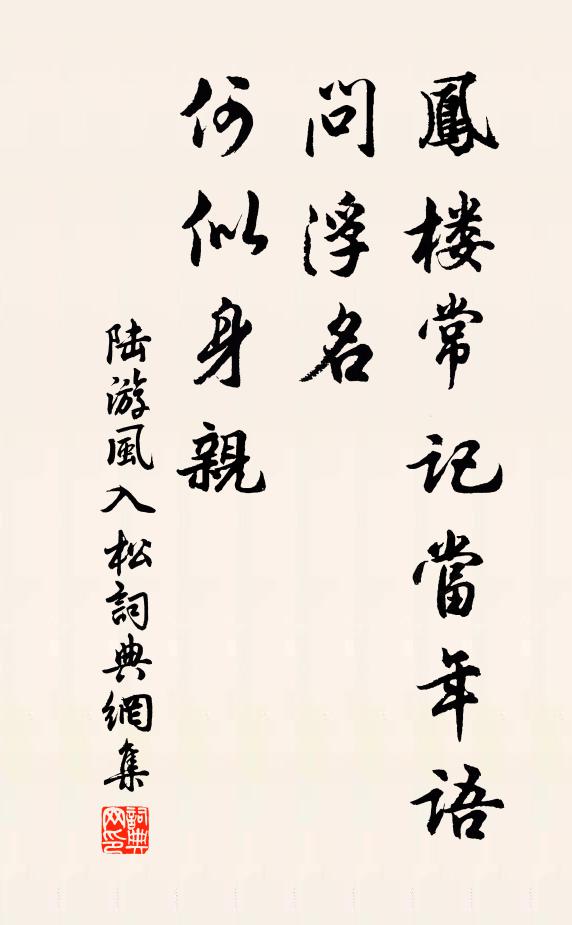 鳳楼常记當年语
问浮名
何似身親
陆游風入松詞典網集
詞典網印